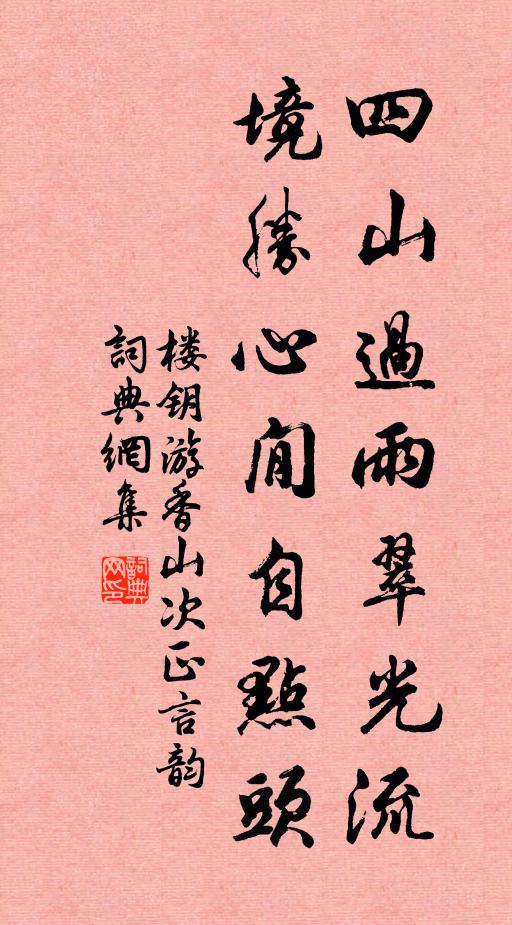 四山過雨翠光流
境勝心閒自點頭
楼钥游香山次正言韵
詞典網集
詞典网印